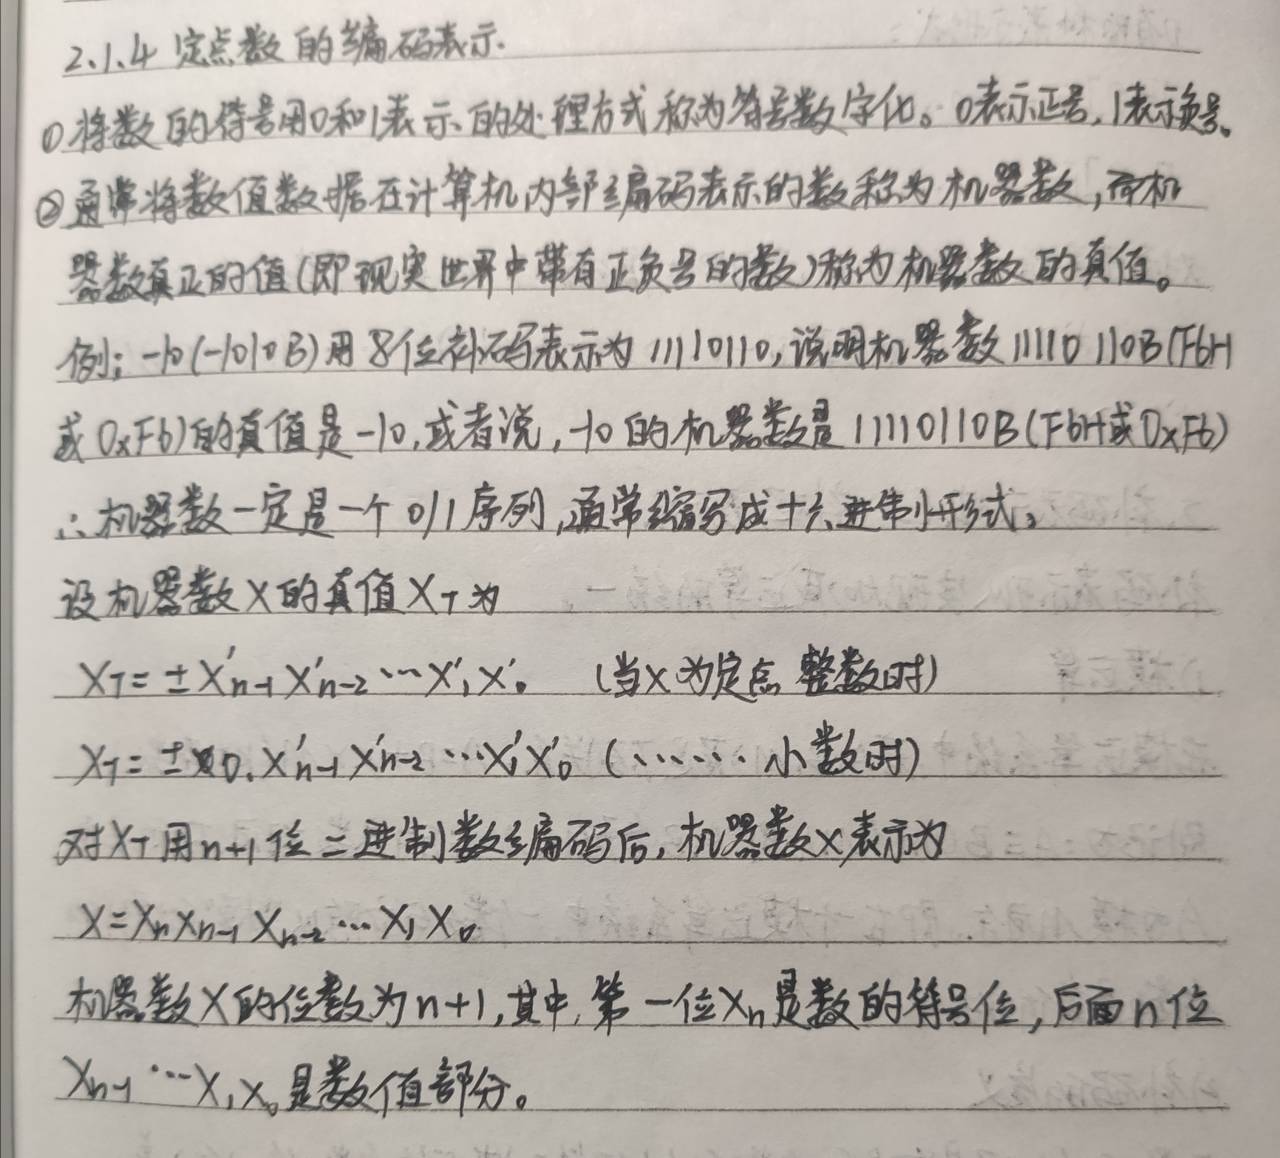 2.1.4 定点数的编码表示.
①将数的符号用0和1表示的处理方式称为符号数字化。0表示正号,1表示负号。
②通常将数值数据在计算机内部编码表示的数称为机器数,而机
器数真正的值(即现实世界中带有正负号的数)称为机器数的真值。
例:-10(-1010B)用8位补码表示为11110110,说明机器数11110110B(F6H
或0xF6)的真值是-10,或者说,-10的机器数是11110110B(F6H或0xF6)
∴机器数一定是一个0/1序列,通常缩写成十六进制形式。
设机器数X的真值X_T为
X_T=±X'_{n-1}X'_{n-2}…X'_1X'_0 (当X为定点整数时)
X_T=±0.X'_{n-1}X'_{n-2}…X'_1X'_0 (……小数时)
对X_T用n+1位二进制数编码后,机器数X表示为
X=X_nX_{n-1}X_{n-2}…X_1X_0
机器数X的位数为n+1,其中,第一位X_n是数的符号位,后面n位
X_{n-1}…X_1X_0是数值部分。